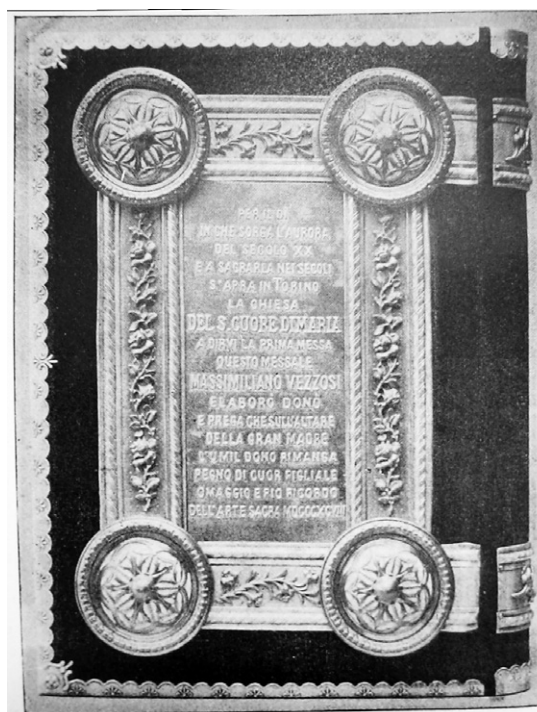 PER IL DÌ
IN CHE SORGA L'AURORA
DEL SECOLO XX
E A SAGRARLA NEI SECOLI
S'APRA IN TORINO
LA CHIESA
DEL S. CUORE DI MARIA
A DIRVI LA PRIMA MESSA
QUESTO MESSALE
MASSIMILIANO VEZZOSI
ELABORÒ DONÒ
E PREGA CHE SULL'ALTARE
DELLA GRAN MADRE
L'UMIL DONO RIMANGA
PEGNO DI CUOR FIGLIALE
OMAGGIO E PIO RICORDO
DELL'ARTE SACRA MDCCCXCVIII